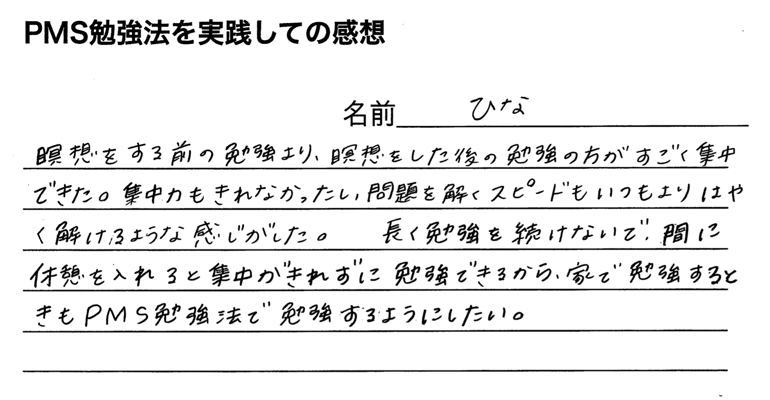 PMS勉強法を実践しての感想
名前 ひな
瞑想をする前の勉強より、瞑想をした後の勉強の方がすごく集中
できた。集中力もきれなかったし、問題を解くスピードもいつもよりはや
く解けるような感じがした。 長く勉強を続けないで、間に
休憩を入れると集中がきれずに勉強できるから、家で勉強すると
きもPMS勉強法で勉強するようにしたい。